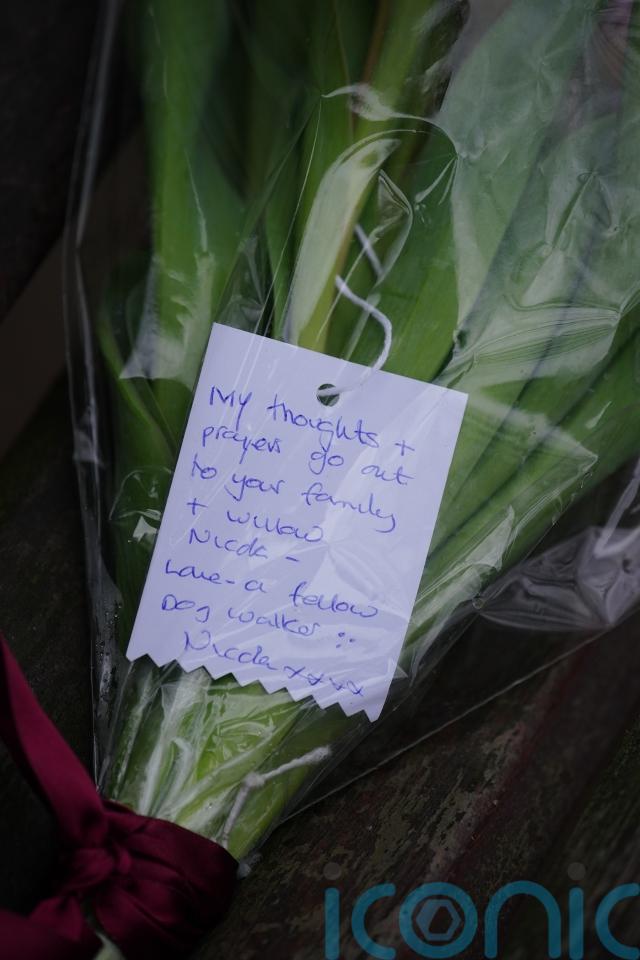 My thoughts +
prayers go out
to your family
+ willow
Nicola -
Love - a fellow
Dog walker :
Nicola xxxx
iconic